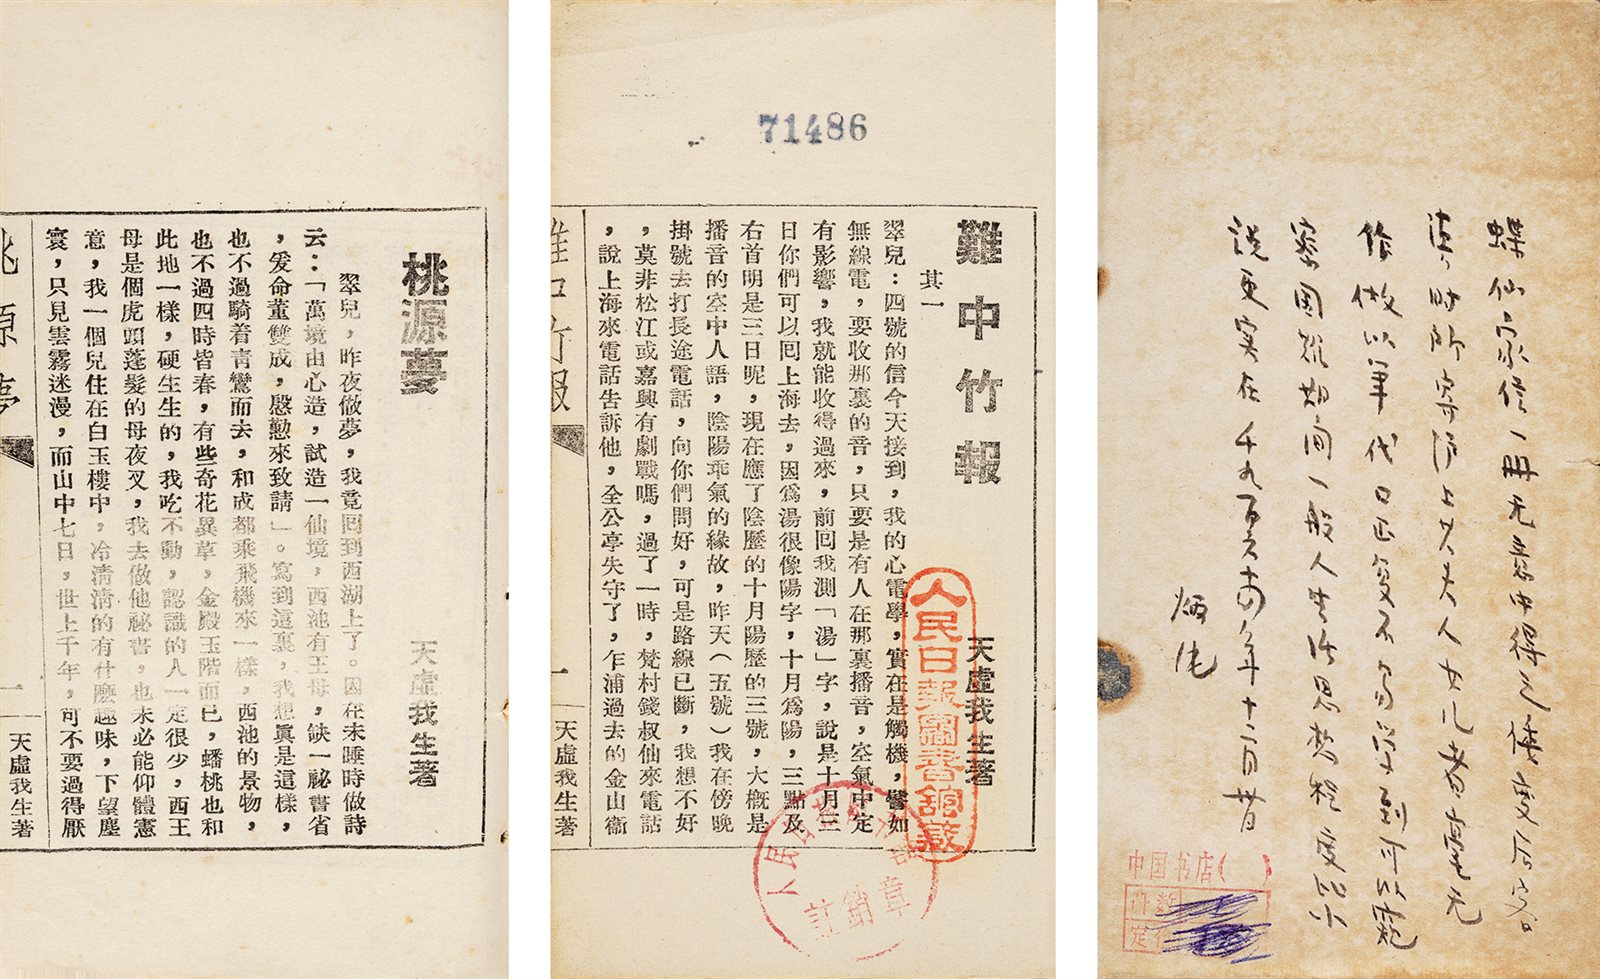 桃源夢
天虛我生著
翠兒,昨夜做夢,我竟囘到西湖上了。因在未睡時做詩
云:「萬境由心造,試造一仙境,西池有王母,缺一祕書省
,爰命董雙成,慇懃來致請」。寫到這裏,我想眞是這樣,
也不過騎着靑鸞而去,和成都乘飛機來一樣,西池的景物,
也不過四時皆春,有些奇花異草,金殿玉階而已,蟠桃也和
此地一樣,硬生生的,我吃不動,認識的人一定很少,西王
母是個虎頭蓬髮的母夜叉,我去做他祕書,也未必能仰體憲
意,我一個兒住在白玉樓中,冷淸淸的有什麽趣味,下望塵
寰,只見雲霧迷漫,而山中七日,世上千年,可不要過得厭
桃源夢 一 天虛我生著
71486
難中竹報
天虛我生著
其一
翠兒:四號的信今天接到,我的心電學,實在是觸機,譬如
無線電,要收那裏的音,只要是有人在那裏播音,空氣中定
有影響,我就能收得過來,前囘我測「湯」字,說是十月三
日你們可以囘上海去,因爲湯很像陽字,十月爲陽,三點及
右首明是三日昵,現在應了陰歷的十月陽歷的三號,大槪是
播音的空中人語,陰陽乖氣的緣故,昨天(五號)我在傍晚
掛號去打長途電話,向你們問好,可是路線已斷,我想不好
,莫非松江或嘉興有劇戰嗎,過了一時,梵村錢叔仙來電話
,說上海來電話告訴他,全公亭失守了,乍浦過去的金山衞
難中竹報 一 天虛我生著
人民日報圖書館藏
註銷章
蝶仙家信一冊无意中得之係事变后客
滇时所寄沪上其夫人女儿者毫无
作做以笔代口正复不易学到可以窥
察国难期间一般人生活思想程度比小
说更实在 千九百 年十二月
中国书店( )
册数
定价